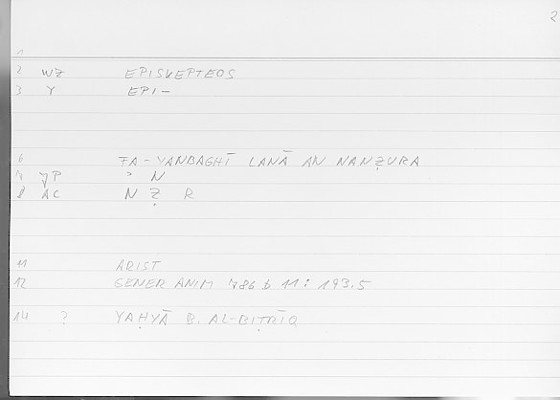 2
1
2 WZ EPISKEPTEOS
3 Y EPI–
6 FA–YANBAGHĪ LANĀ AN NANẒURA
7 JP ʾ N
8 AC N Ẓ R
11 ARIST
12 GENER ANIM 786 b 11 : 193,5
14 ? YAḤYĀ B. AL-BIṬRĪQ